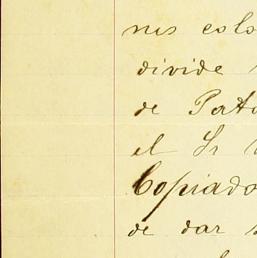 nes colo
divide
de Pata
el Sr
Copiado
de dar